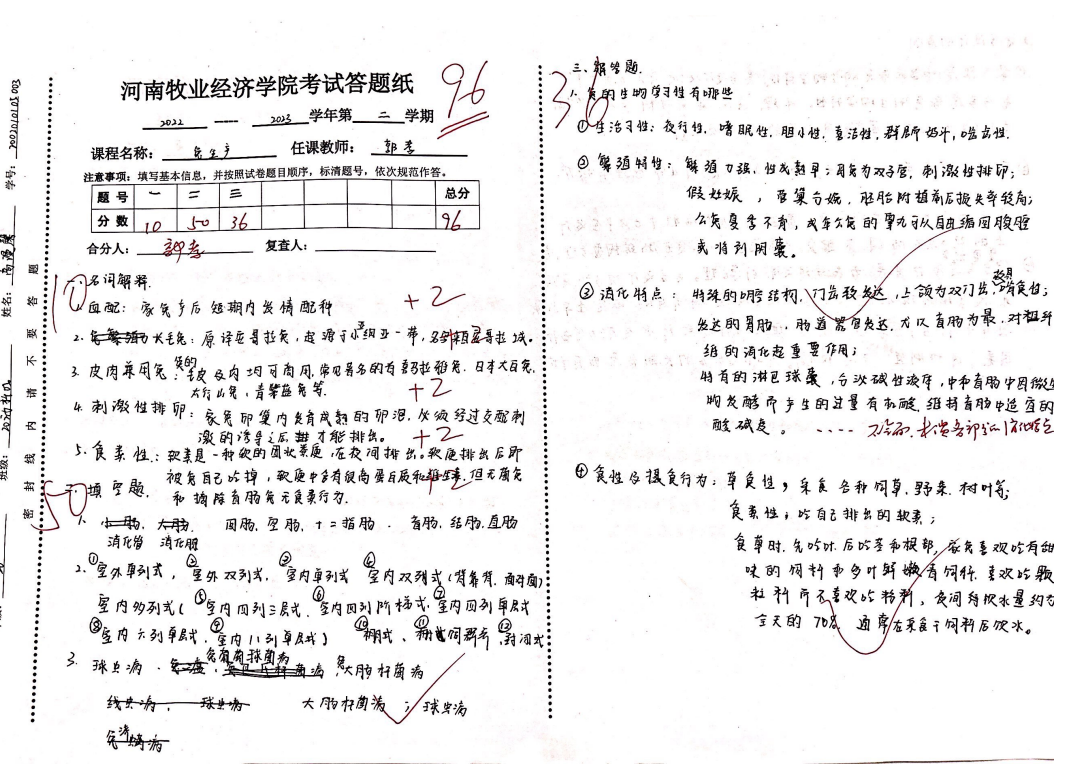 河南牧业经济学院考试答题纸
96
2022 —— 2023 学年第 二 学期
课程名称: 兔生产 任课教师: 郭孝
注意事项: 填写基本信息，并按照试卷题目顺序，标清题号，依次规范作答。
题号 一 二 三 总分
分数 10 50 36 96
合分人: 郭孝 复查人:
学号:
姓名:
班级:
密封线内请不要答题
10
一、名词解释.
1. 血配: 家兔产后短期内发情配种 +2
2. 长毛兔: 原译应哥拉兔, 起源于小亚一带,
3. 皮肉兼用兔: 兔的皮及肉均可商用, 常见著名的有青紫拉雅兔. 日本大白兔,
太行山兔, 青紫蓝兔等. +2
4. 刺激性排卵: 家兔卵巢内发育成熟的卵泡, 必须经过交配刺
激的诱导之后才能排出。 +2
5. 食粪性: 软粪是一种软的团状粪便, 在夜间排出. 软便排出后即
被兔自己吃掉, 软便中含有很高蛋白质和维生素, 但无菌兔
和摘除盲肠兔无食粪行为. +2
50
二. 填空题.
1. 小肠, 大肠. 回肠. 空肠. 十二指肠. 盲肠. 结肠. 直肠
消化管 消化腺
2. ①室外单列式, ②室外双列式, ③室内单列式 ④室内双列式(背靠背. 面对面)
室内多列式( ⑤室内四列三层式, ⑥室内四列阶梯式, ⑦室内四列单层式
⑧室内六列单层式, ⑨室内八列单层式) ⑩棚式、 ⑫封闭式
3. 球虫病. 兔葡萄球菌病 兔大肠杆菌病
线虫病, 球虫病 大肠杆菌病; 球虫病
兔螨病
36
三. 解答题.
1. 兔的生物学习性有哪些
①生活习性: 夜行性, 嗜眠性, 胆小性, 喜洁性, 群居好斗, 啮齿性.
② 繁殖特性: 繁殖力强. 性成熟早; 母兔为双子宫, 刺激性排卵;
假妊娠, 胚胎附植前后损失率较高;
公兔夏季不育, 成年公兔的睾丸可以自由缩回腹腔
或滑到阴囊。
③ 消化特点: 特殊的口腔结构. 门齿较发达, 上颌为双门齿.
发达的胃肠, 肠道器官发达, 尤以盲肠为最, 对粗纤
维的消化起重要作用;
特有的淋巴球囊, 分泌碱性液体, 中和盲肠中因微生
物发酵而产生的过量有机酸, 维持盲肠中适宜的
酸碱度。
④ 食性及摄食行为: 草食性, 采食各种饲草, 野菜. 树叶等;
食粪性; 吃自己排出的软粪;
食草时, 先吃叶. 后吃茎和根部, 家兔喜欢吃有甜
味的饲料和多叶鲜嫩青饲料, 喜欢吃颗
粒料而不喜欢吃粉料, 夜间每饮水量约为
全天的 70%, 通常在采食干饲料后饮水。